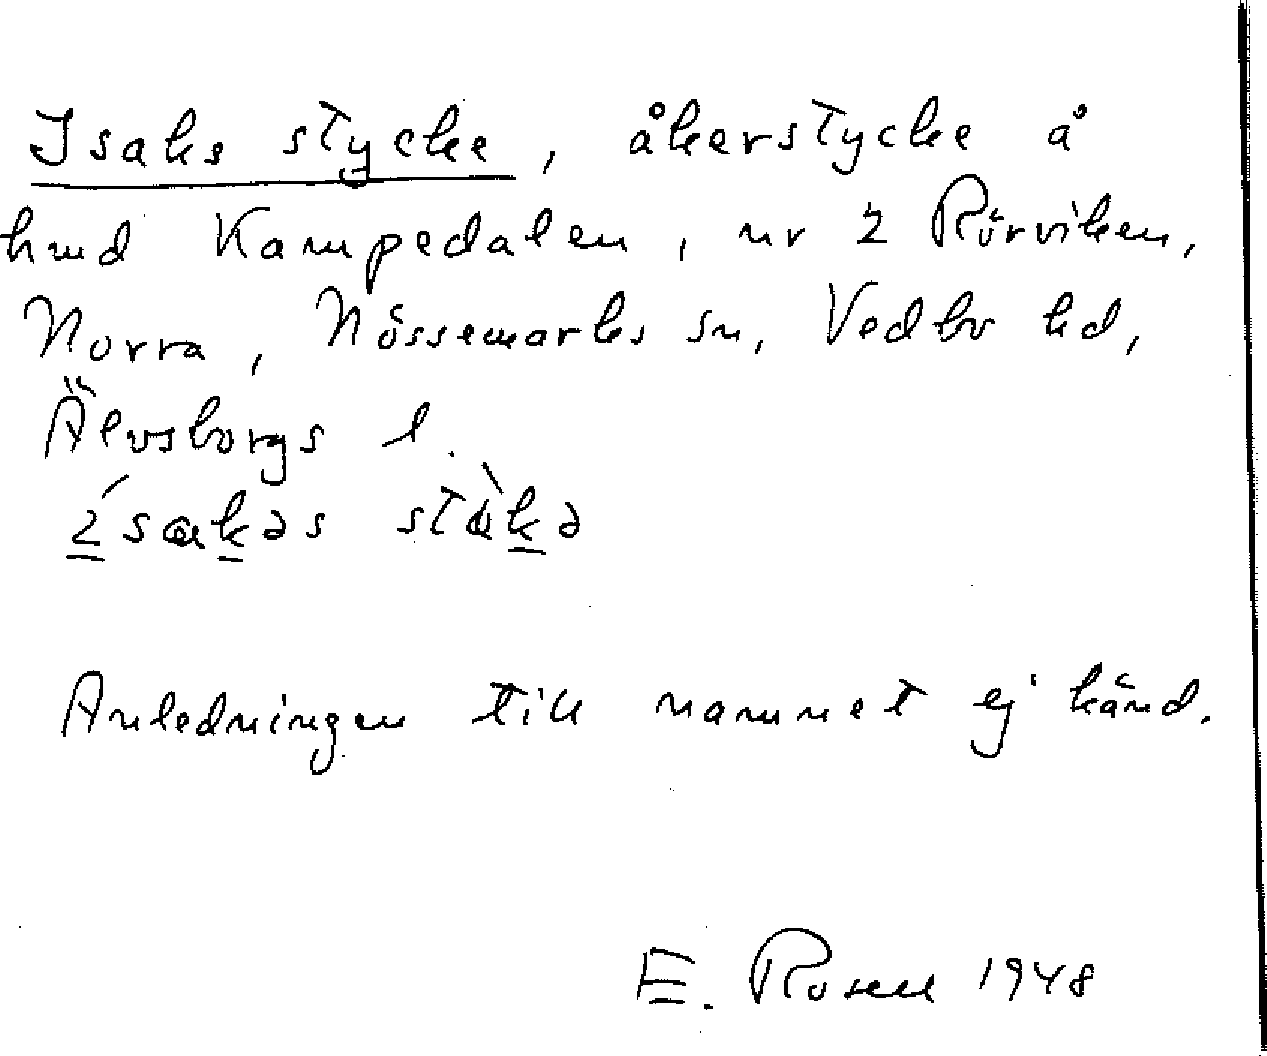 Isaks stycke, åkerstycke å
hmd Kampedalen, nr 2 Rörviken,
Norra, Nössemarks sn, Vedbo hd,
Älvsborgs l.
Anledningen till namnet ej känd.
E. Rosell 1948